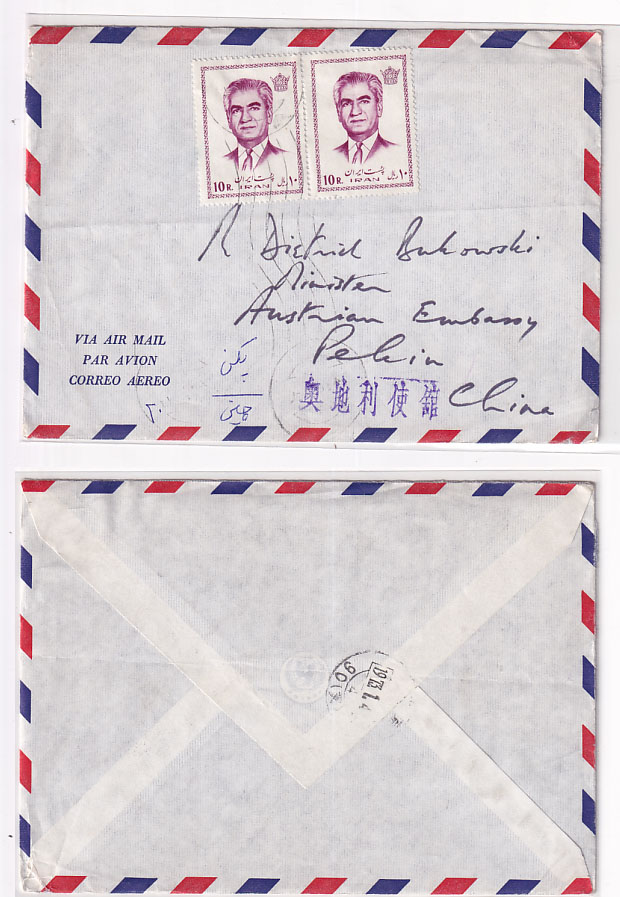 پست ایران
10 R. IRAN ۱۰ ریال
پست ایران
10 R. IRAN ۱۰ ریال
Dietrich Bukowski
Minister
Austrian Embassy
Pekin
China
VIA AIR MAIL
PAR AVION
CORREO AEREO
پکن
چین
۲۰
奥地利使舘
1973.1.4